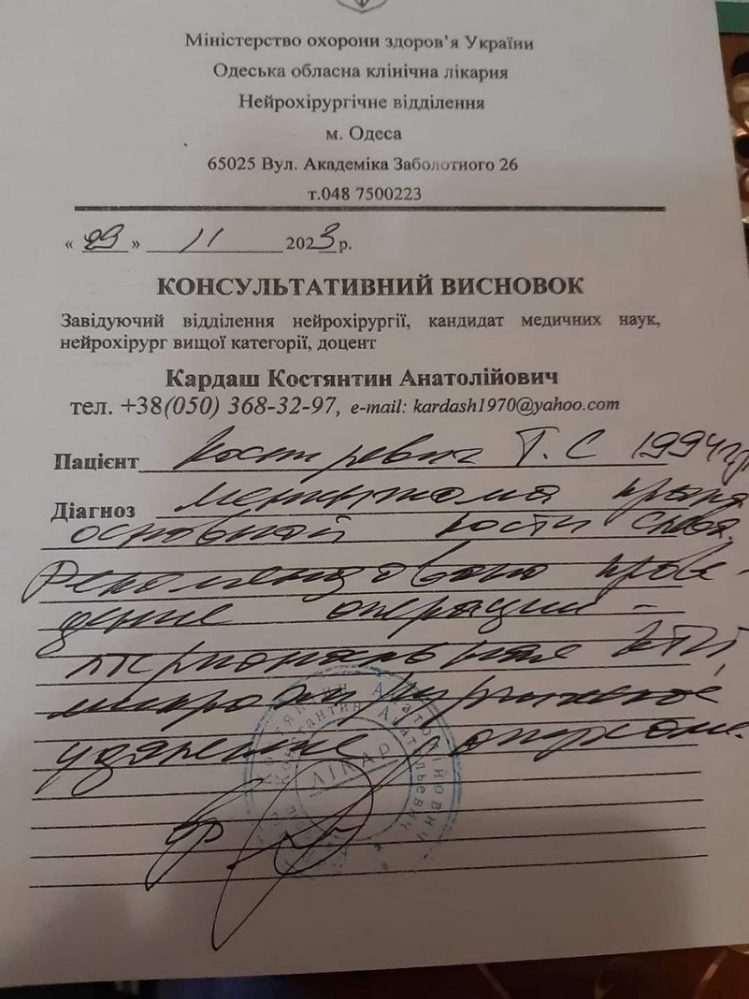 Міністерство охорони здоров’я України
Одеська обласна клінічна лікарня
Нейрохірургічне відділення
м. Одеса
65025 Вул. Академіка Заболотного 26
т.048 7500223
« 29 » 11 2023 р.
КОНСУЛЬТАТИВНИЙ ВИСНОВОК
Завідуючий відділення нейрохірургії, кандидат медичних наук,
нейрохірург вищої категорії, доцент
Кардаш Костянтин Анатолійович
тел. +38(050) 368-32-97, e-mail: kardash1970@yahoo.com
Пацієнт Т. С 1994
Діагноз менингиома крыла
основной кости слева.
Рекомендовано прове-
дение операции -
птериональная КПТЧ,
микрохирургическое
удаление опухоли.
Костянтин Анатолійович
Константин Анатольевич
ЛІКАР